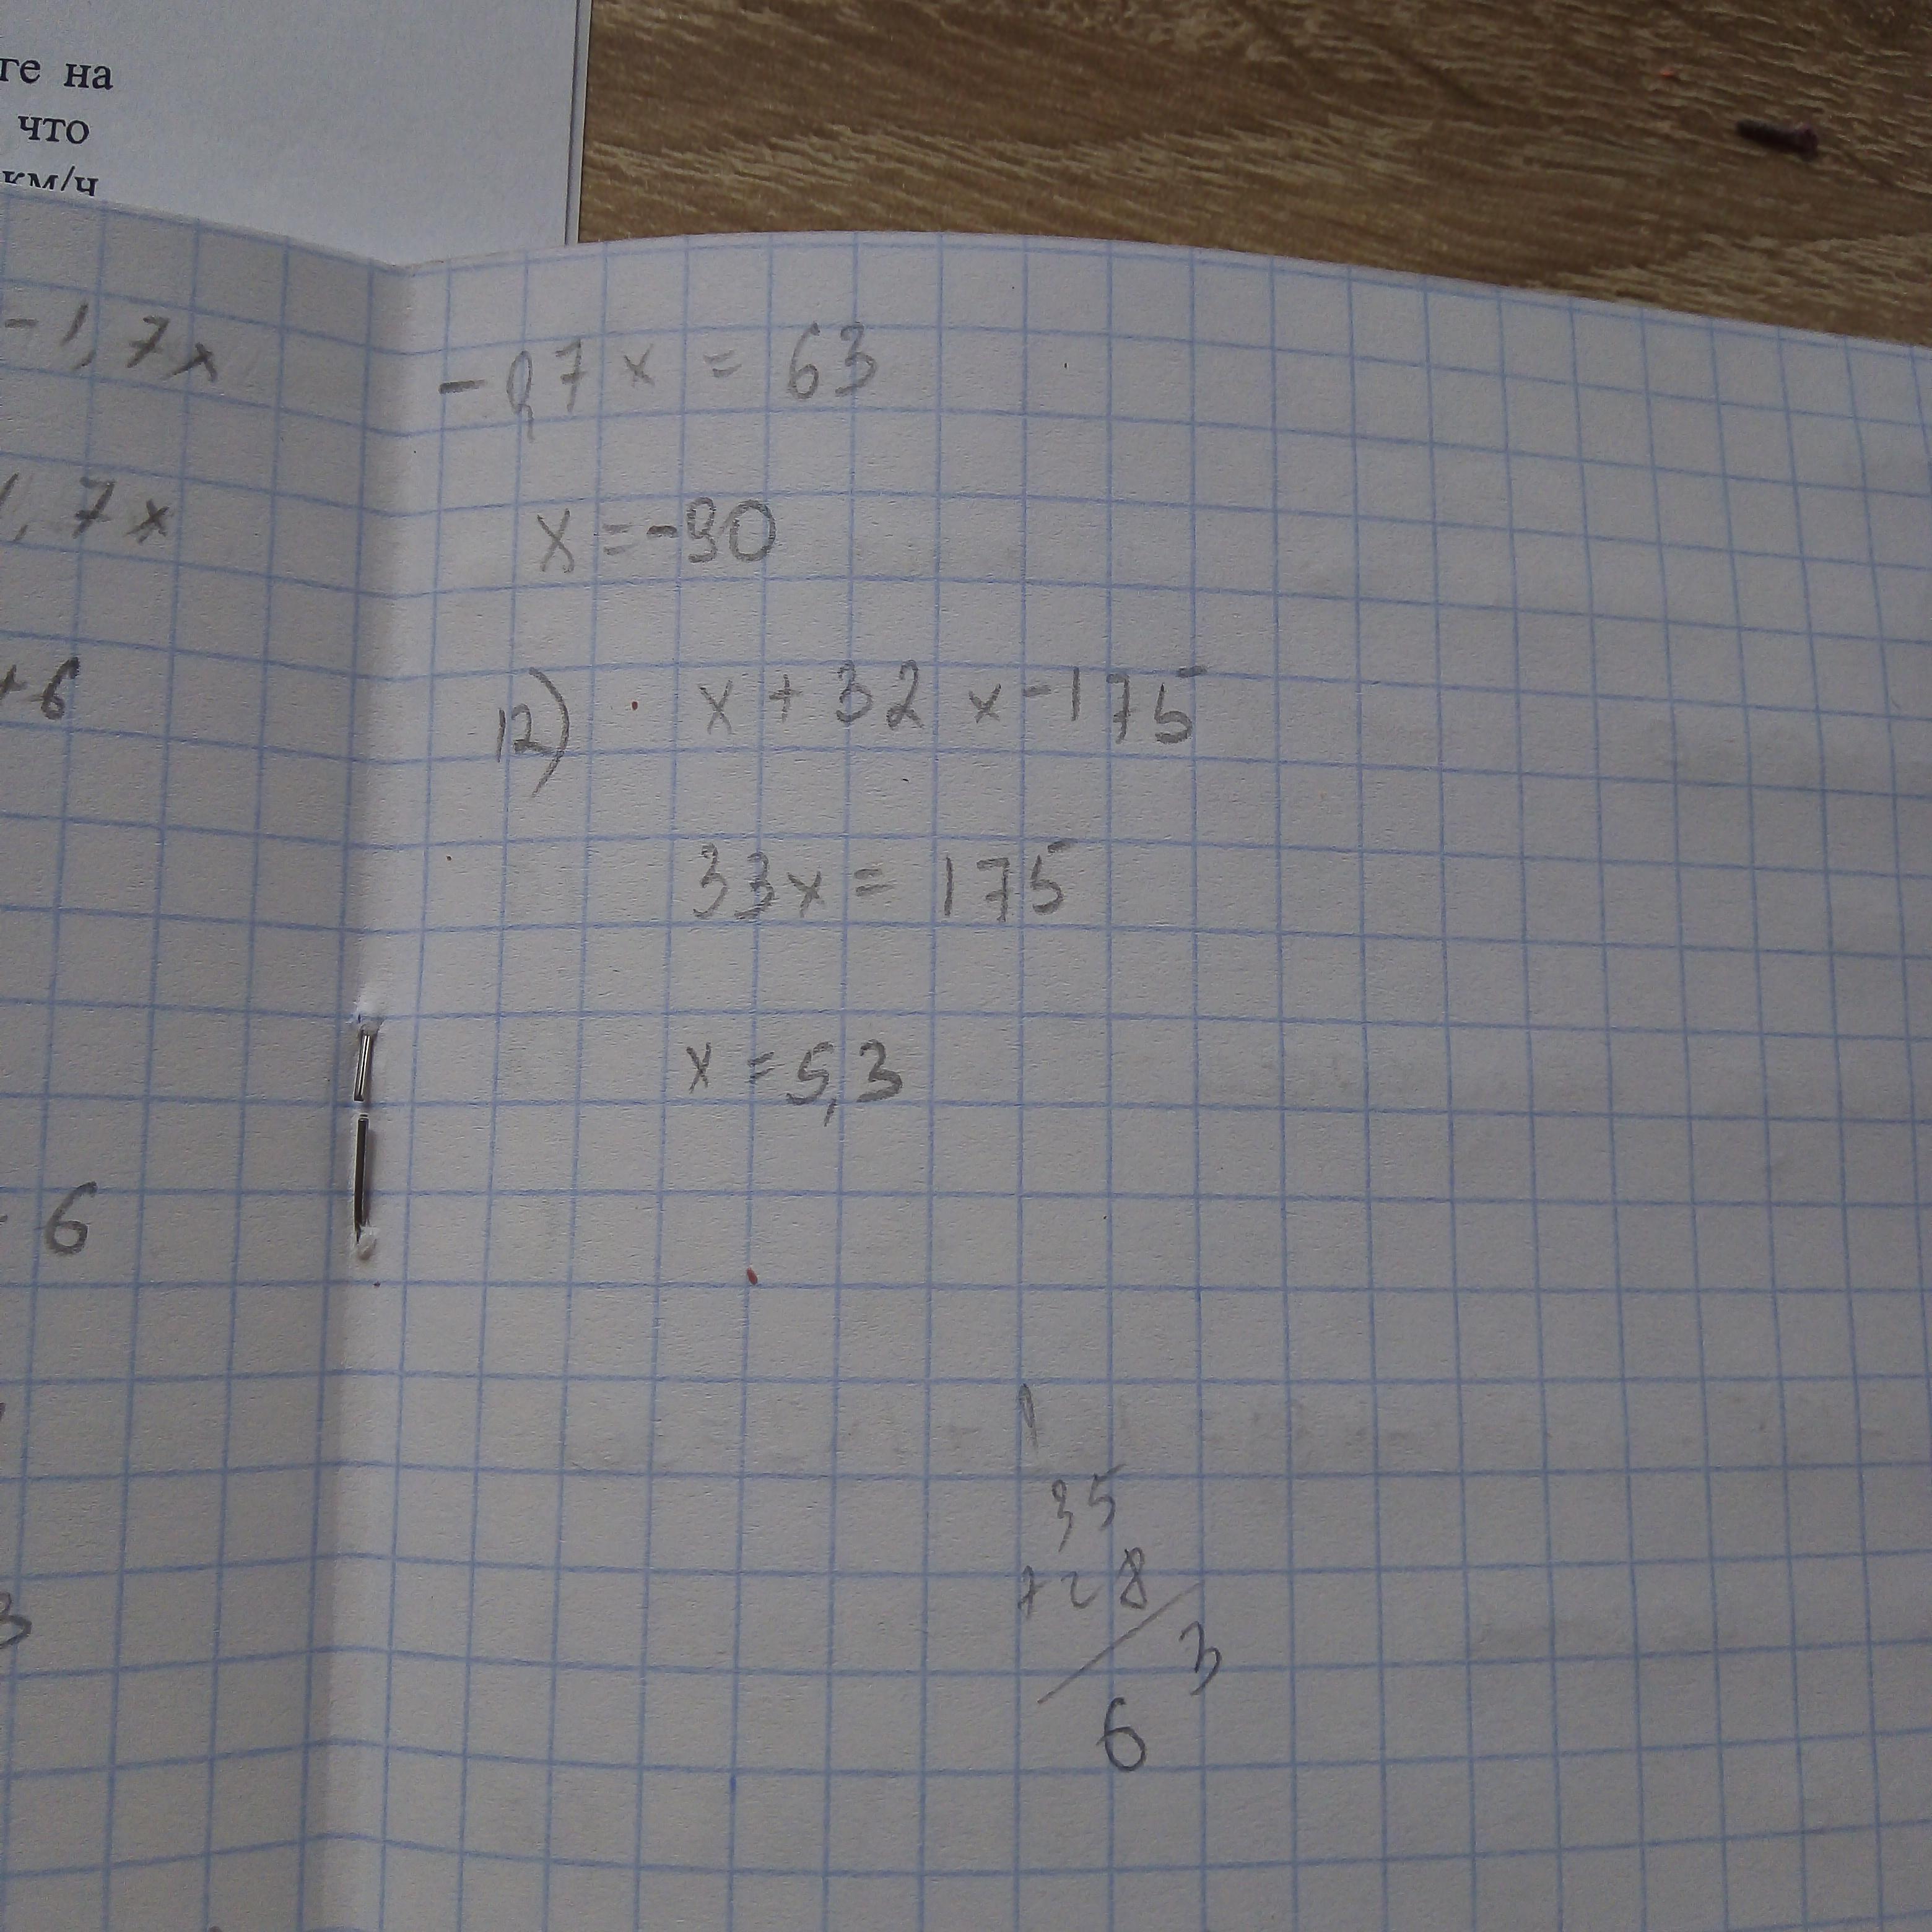 ге на
что
км/ч
-1,7x
1,7x
+6
- 6
3
-0,7x = 63
x = -90
12) x + 32x - 175
33x = 175
x = 5,3
1
35
+28
3
6